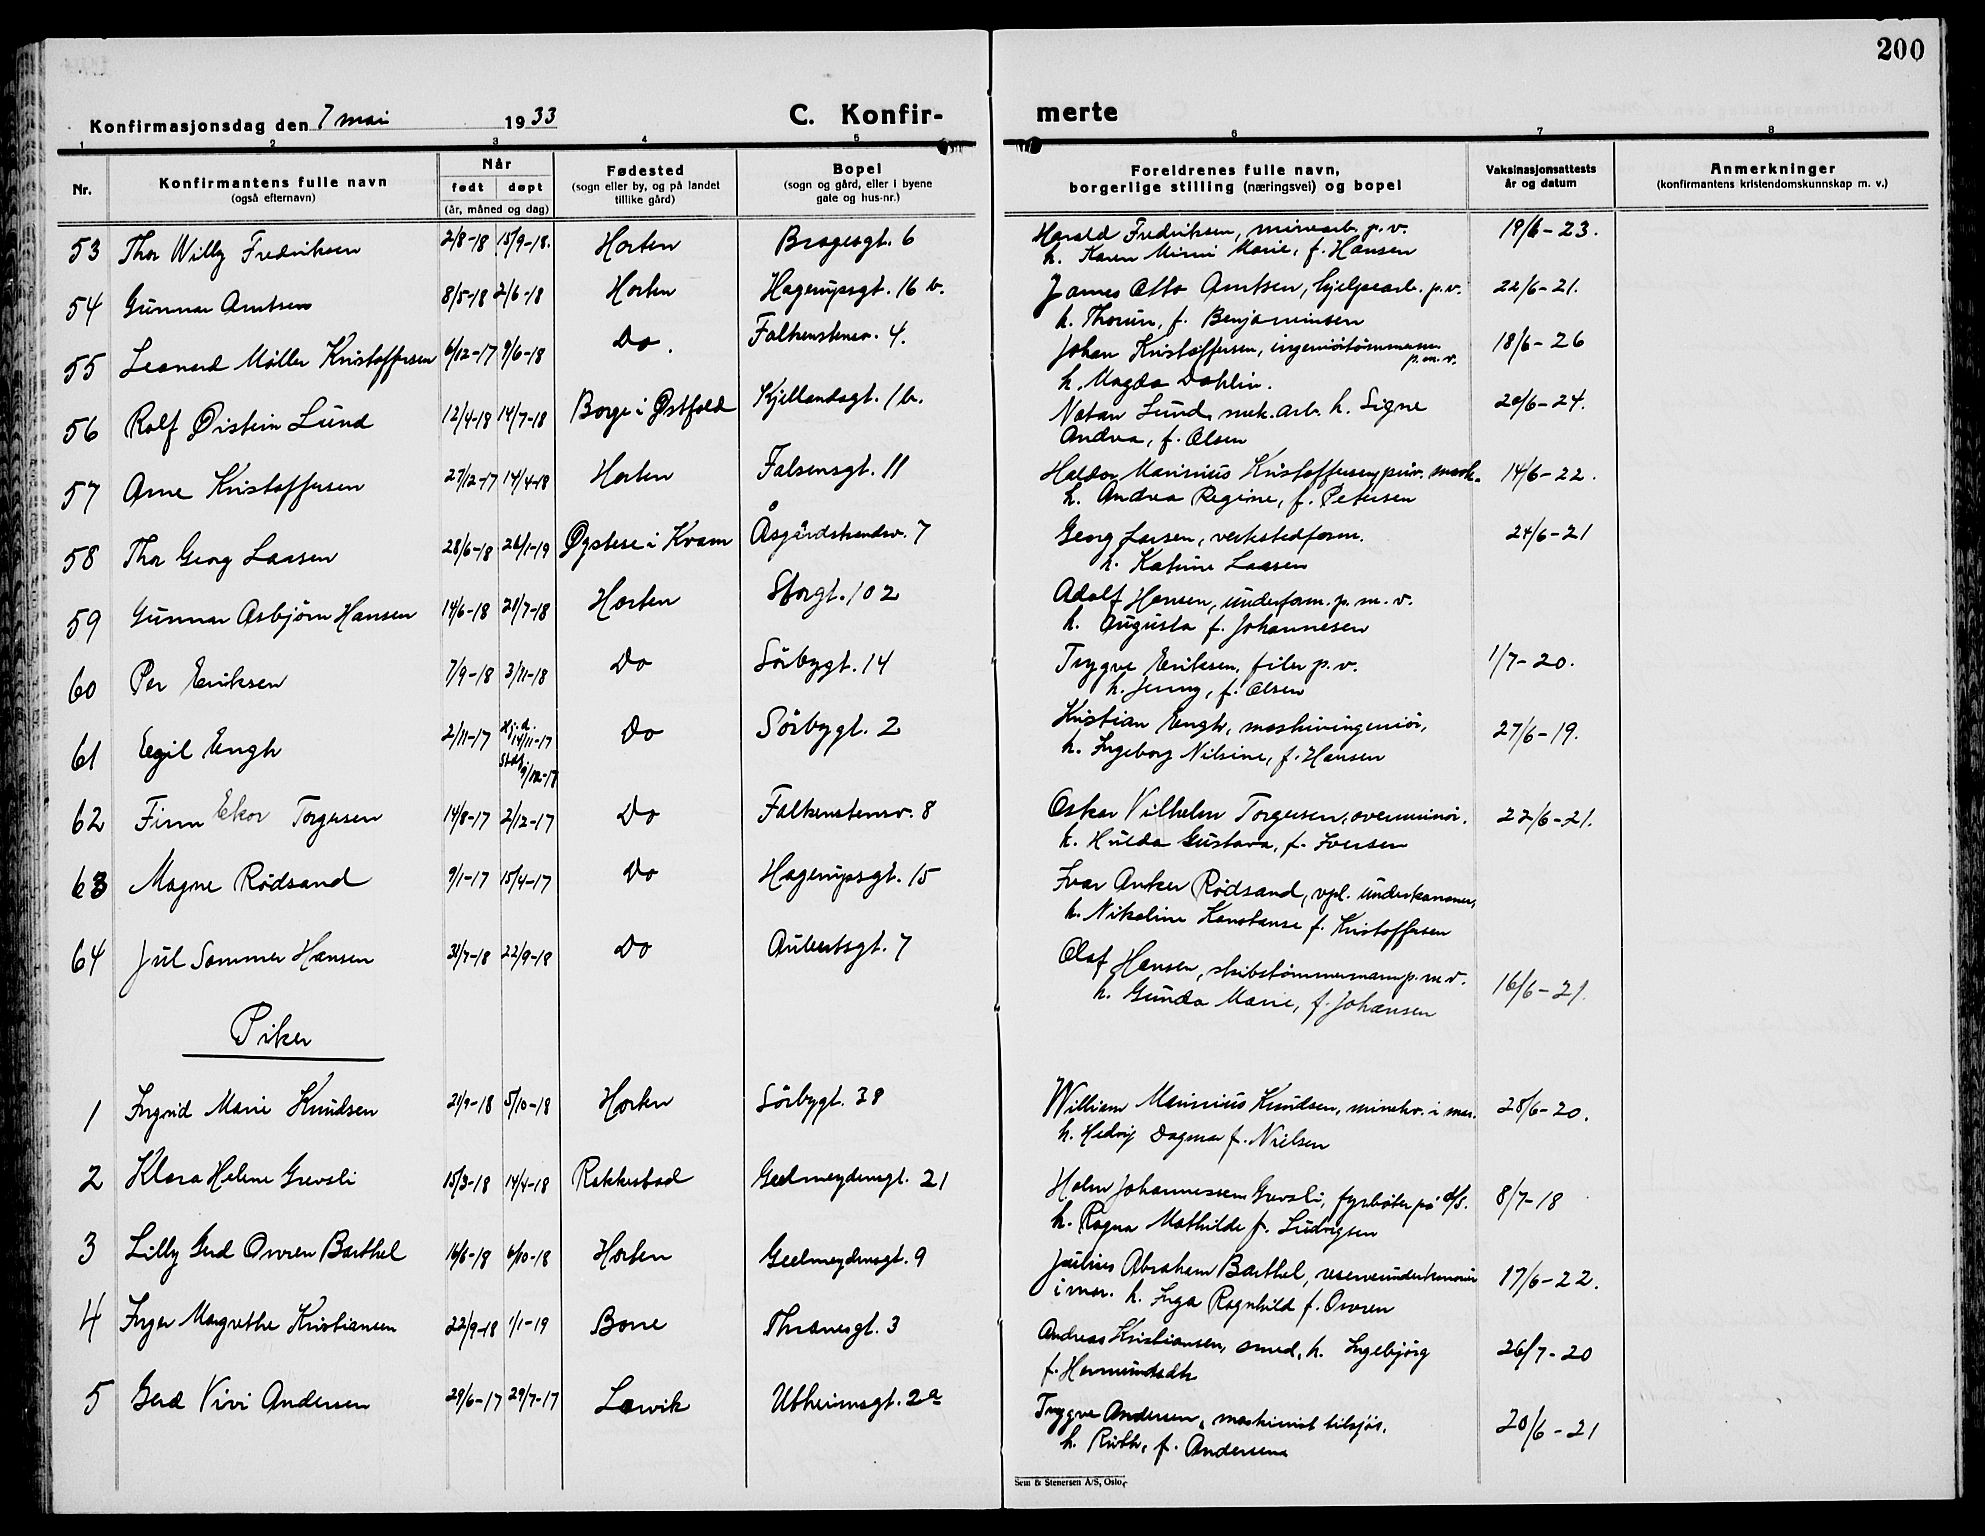 200
Konfirmasjonsdag den 7 mai 1933 C. Konfirmerte
1 2 3 4 5 6 7 8
Nr. Konfirmantens fulle navn (også efternavn) Når født døpt (år, måned og dag) Fødested (sogn eller by, og på landet tillike gård) Bopel (sogn og gård, eller i byene gate og hus-nr.) Foreldrenes fulle navn, borgerlige stilling (næringsvei) og bopel Vaksinasjonsattests år og datum Anmerkninger (konfirmantens kristendomskunnskap m. v.)
53 Thor Willy Fredriksen 2/8-18 15/9-18. Horten Bragesgt. 6 Harald Fredriksen, minearb. p.v. 19/6-23.
h. Karen Mimi Marie, f. Hansen
54 Gunnar Arntsen 8/5-18 2/6-18 Horten Hagerupsgt. 16 b. James Otto Arntsen, hjelpearb. p.v. 22/6-21.
h. Thorun, f. Benjaminsen
55 Leonard Møller Kristoffersen 6/12-17 9/6-18 Do. Falkenstensv. 4. Johan Kristoffersen, ingeniörtömmerm. p.m.v. 18/6-26
h. Magda Dahlin.
56 Rolf Øistein Lund 12/4-18 14/7-18 Borge i Østfold Kjellandsgt. 1b. Natan Lund, mek. arb. h. Signe 20/6-24.
Andrea, f. Olsen
57 Arne Kristoffersen 27/12-17 14/4-18 Horten Falsensgt. 11 Haldor Marinius Kristoffersen, priv. mask. 14/6-22.
h. Andrea Regine, f. Petersen
58 Thor Georg Laasen 28/6-18 26/1-19 Øystese i Kvam Åsgårdstrandsv. 7 Georg Larsen, verkstedform. 24/6-21
h. Katrine Laasen
59 Gunnar Asbjørn Hansen 14/6-18 21/7-18 Horten Storgt. 102 Adolf Hansen, underform. p. m. v.
h. Augusta f. Johannesen
60 Per Eriksen 7/9-18 3/11-18 Do Sörbygt. 14 Trygve Eriksen, filer p.v. 1/7-20.
h. Jenny, f. Olsen
61 Egil Engh 2/11-17 Hj.d. 14/11-17 Stadf. 9/12-17 Do Sörbygt. 2 Kristian Engh, maskiningeniör, 27/6-19.
h. Ingeborg Nilsine, f. Hansen
62 Finn Ekor Torgersen 14/8-17 2/12-17 Do Falkenstensv. 8 Oskar Vilhelm Torgersen, overminör. 22/6-21.
h. Hulda Gustava, f. Iversen
63 Magne Rødsand 9/1-17 15/4-17 Do Hagerupsgt. 15 Ivar Anker Rødsand, vpl. underkanoner,
h. Nikoline Konstanse f. Kristoffersen
64 Jul Sommer Hansen 31/7-18 22/9-18 Do Aubertsgt. 7 Olaf Hansen, skibstømmermann p. m. v. 16/6-21.
h. Gunda Marie, f. Johansen
Piker
1 Ingrid Marie Knudsen 21/9-18 5/10-18 Horten Sörbygt. 38 William Marinius Knudsen, minekv. i mar. 28/6-20.
h. Hedvig Dagmar f. Nielsen
2 Klara Helene Grevsli 15/3-18 14/4-18 Rakkestad Geelmeydensgt. 21 Holm Johannessen Grevsli, fyrböter på d/s. 8/7-18
h. Ragna Mathilde f. Ludvigsen
3 Lilly Gerd Ovren Barthel 16/8-18 6/10-18 Horten Geelmeydensgt. 9 Julius Abraham Barthel, reserveunderkanonér 17/6-22.
i mar. h. Inga Ragnhild f. Ovren
4 Inger Margrethe Kristiansen 22/9-18 1/1-19 Borre Thranesgt. 3 Andreas Kristiansen, smed, h. Ingebjörg 26/7-20
f. Hermundsdtr
5 Gerd Vivi Andersen 29/6-17 29/7-17 Larvik Utheimsgt. 2a Trygve Andersen, maskinist tilsjös, 20/6-21
h. Ruth, f. Andersen
Sem & Stenersen A/S, Oslo.